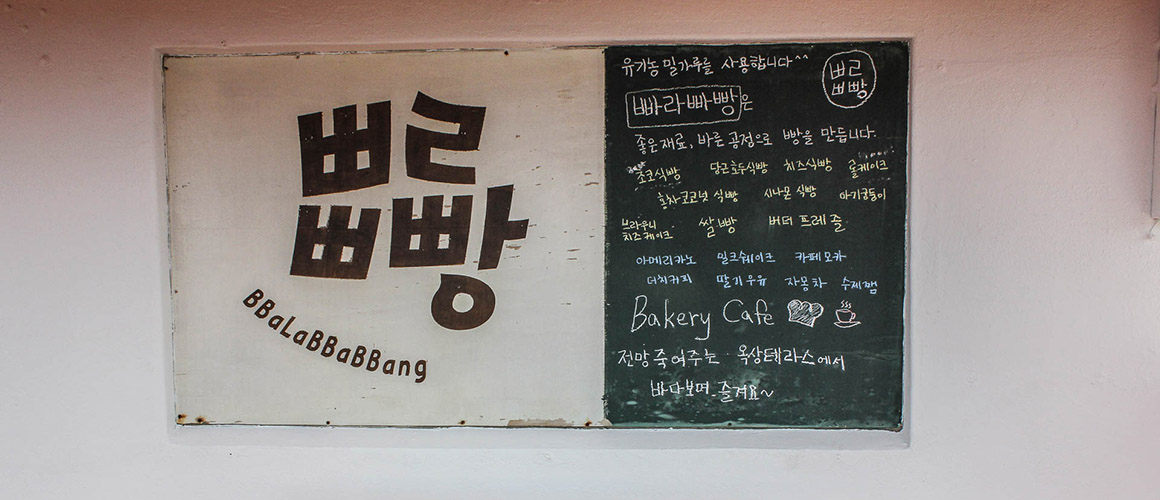 빠라
빠빵
BBaLaBBaBBang
유기농 밀가루를 사용합니다^^
빠라
빠빵
빠라빠빵은
좋은재료, 바른 공정으로 빵을 만듭니다.
초코식빵 당근호두식빵 치즈식빵 롤케이크
홍차코코넛 식빵 시나몬 식빵 아기궁둥이
브라우니
치즈케이크 쌀빵 버터 프레즐
아메리카노 밀크쉐이크 카페모카
더치커피 딸기우유 자몽차 수제잼
Bakery Cafe
전망죽여주는 옥상테라스에서
바다보며 즐겨요~